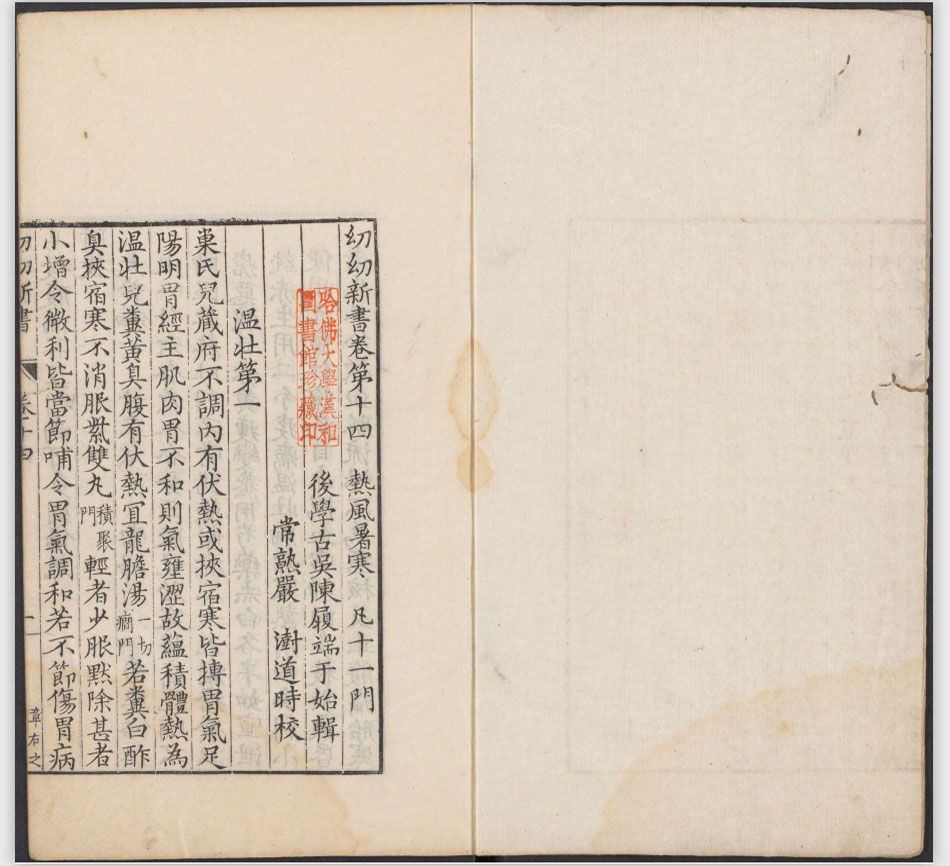 幼幼新書卷第十四 熱風暑寒 凡十一門
後學古吳陳履端于始輯
常熟嚴 澍道時校
溫壯第一
巢氏兒藏府不調內有伏熱或挾宿寒皆搏胃氣足
陽明胃經主肌肉胃不和則氣壅澀故蘊積體熱為
溫壯兒糞黃臭腹有伏熱宜龍膽湯一切癇門若糞白酢
臭挾宿寒不消服紫雙丸積聚門輕者少服默除甚者
小增令微利皆當節哺令胃氣調和若不節傷胃病
幼幼新書 卷十四 一 章右之
哈佛大學漢和
圖書館珍藏印